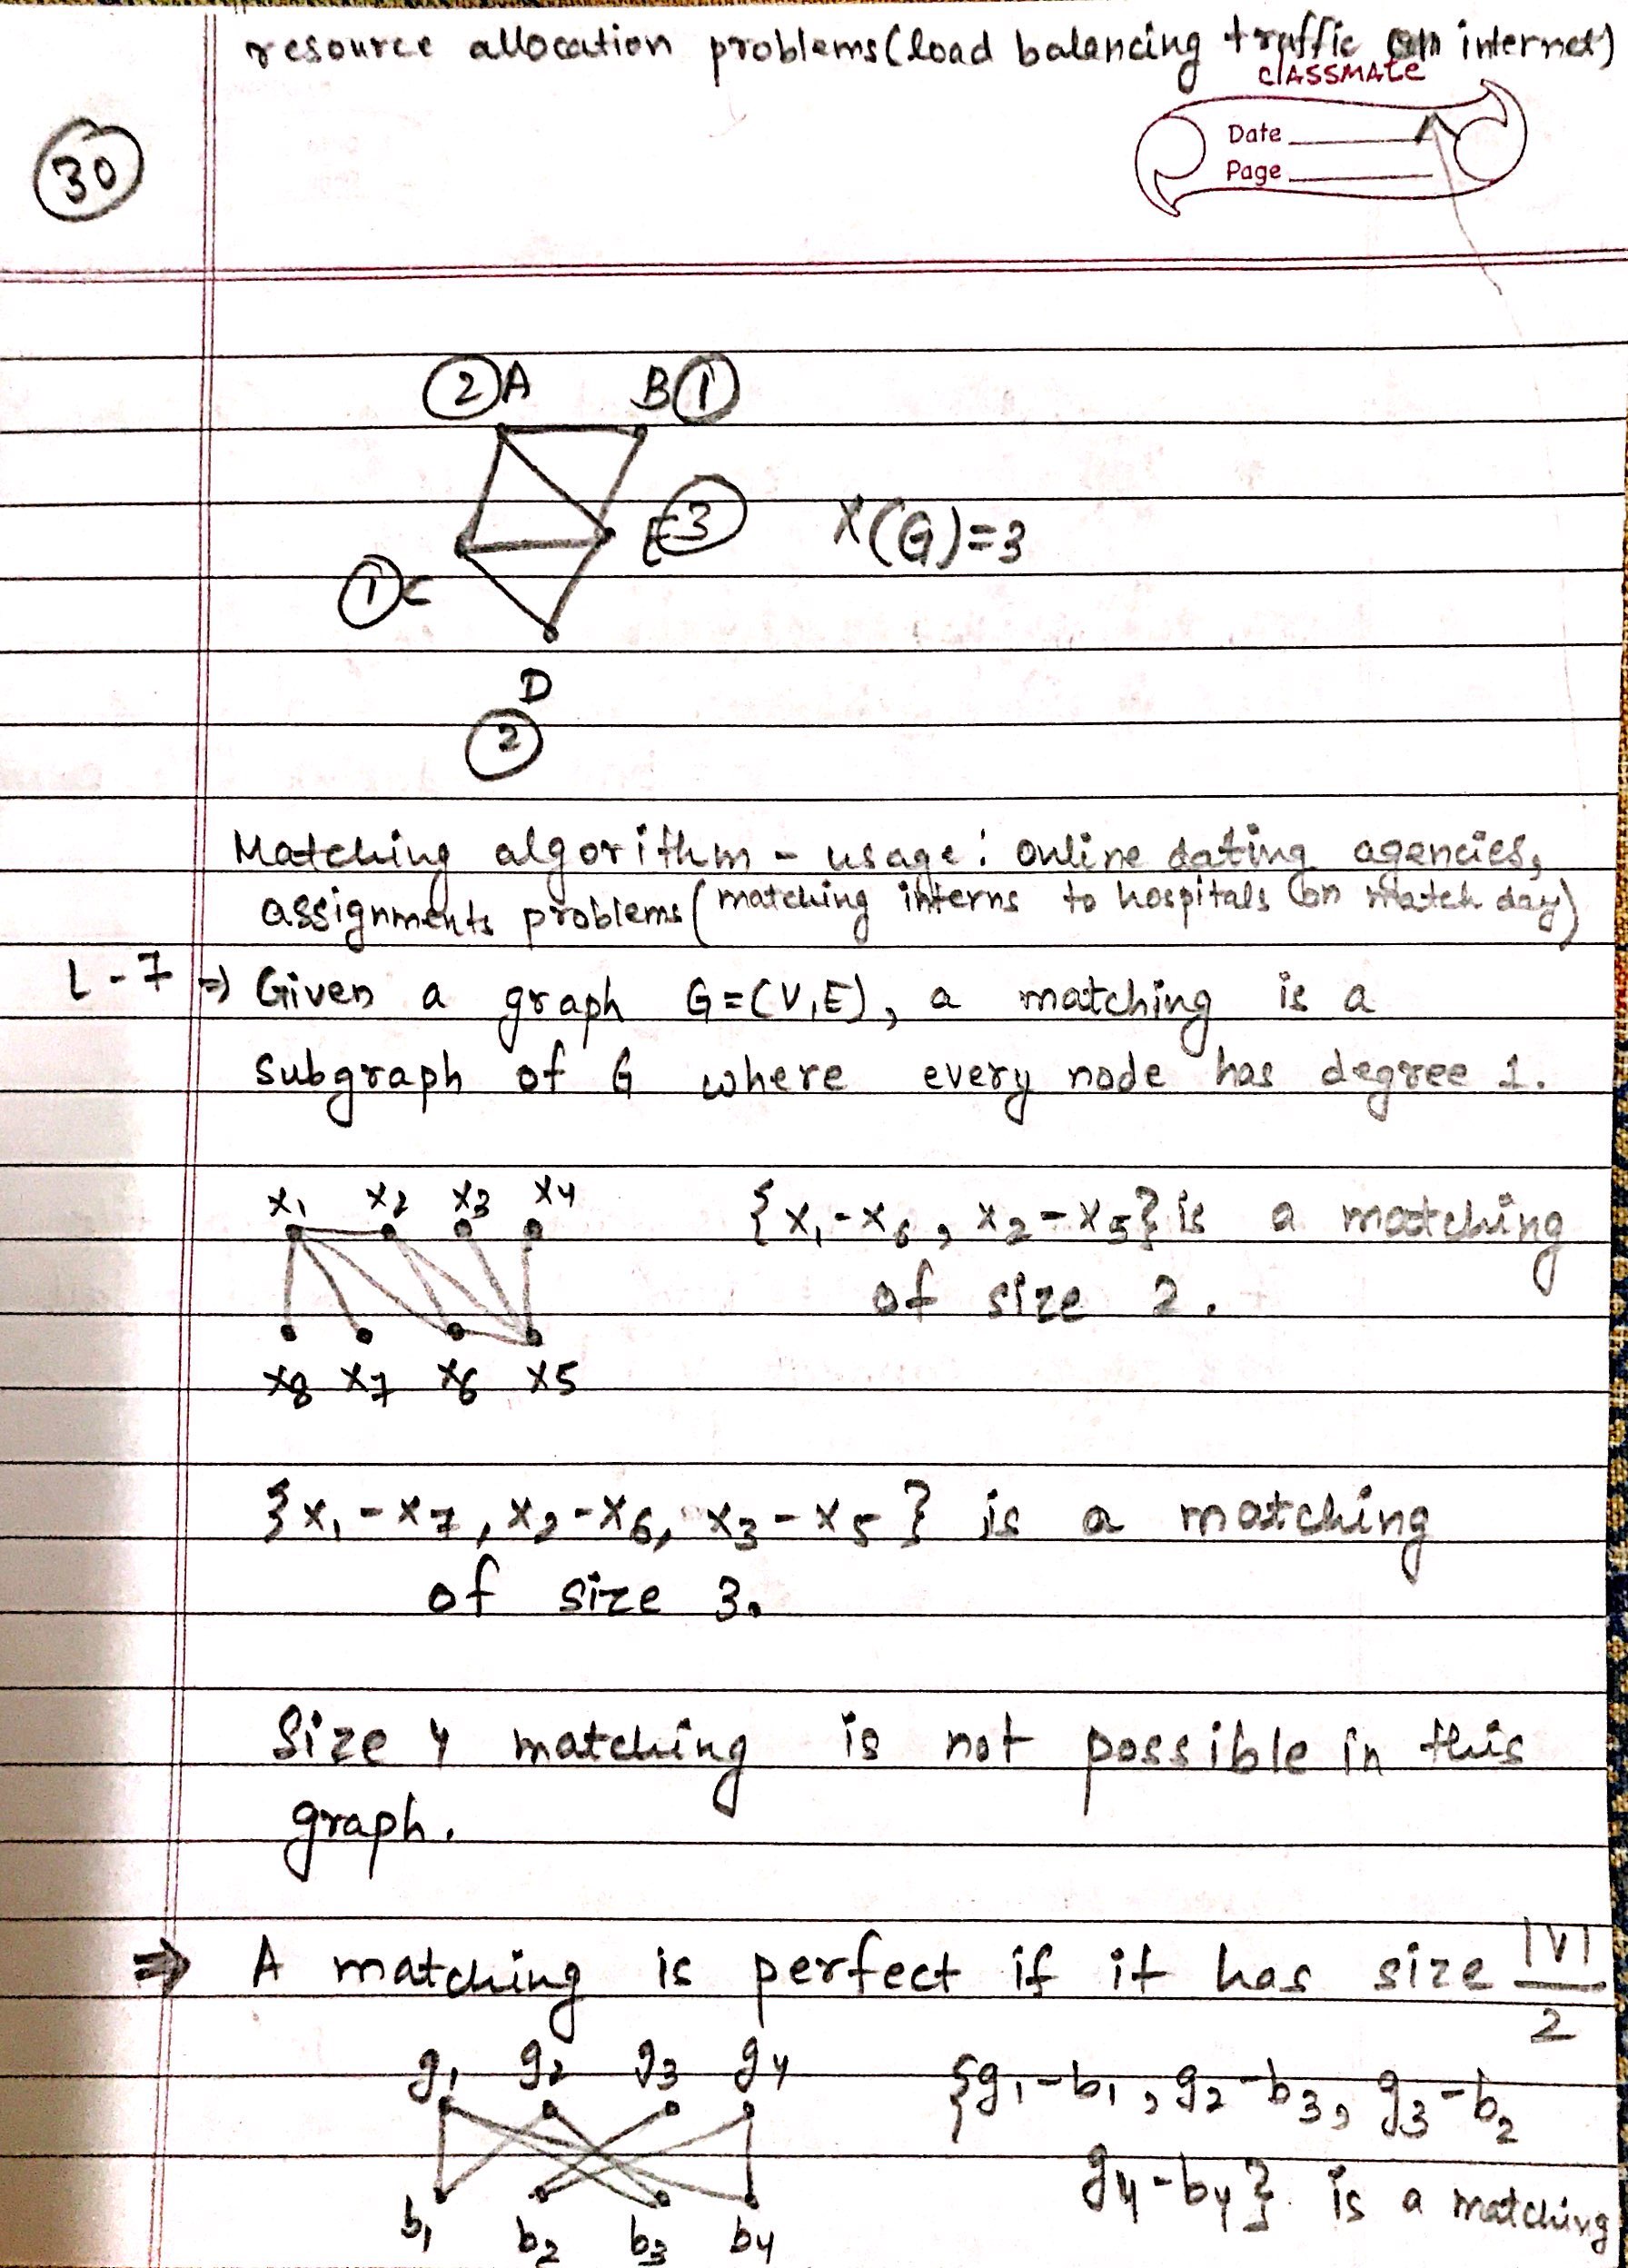 resource allocation problems(load balancing traffic on internet)
classmate
Date
Page
30
2 A B 1
E 3 X(G)=3
1 C
D
2
Matching algorithm - usage: online dating agencies,
assignments problems (matching interns to hospitals on match day)
L-7 => Given a graph G=(V,E), a matching is a
subgraph of G where every node has degree 1.
x1 x2 x3 x4 {x1-x6, x2-x5} is a matching
of size 2.
x8 x7 x6 x5
{x1-x7, x2-x6, x3-x5} is a matching
of size 3.
Size 4 matching is not possible in this
graph.
=> A matching is perfect if it has size |V|/2
g1 g2 g3 g4 {g1-b1, g2-b3, g3-b2
g4-b4} is a matching
b1 b2 b3 b4